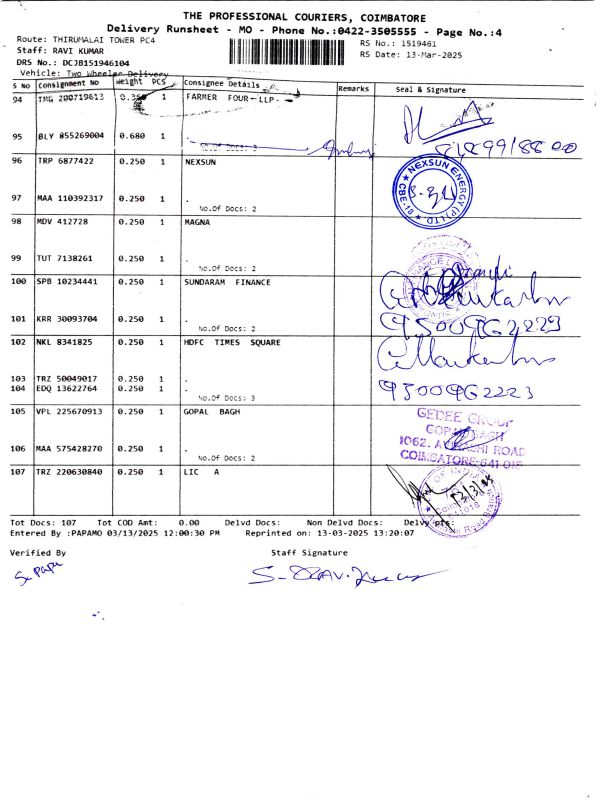 THE PROFESSIONAL COURIERS, COIMBATORE
Delivery Runsheet - MO - Phone No.:0422-3505555 - Page No.:4
Route: THIRUMALAI TOWER PC4 RS No.: 1519461
Staff: RAVI KUMAR RS Date: 13-Mar-2025
DRS No.: DCJB151946104
Vehicle: Two Wheeler Delivery
S No Consignment No Weight PCS Consignee Details Remarks Seal & Signature
94 TMG 200719613 1 FARMER FOUR-LLP.
95 BLY 855269004 0.680 1 .
96 TRP 6877422 0.250 1 NEXSUN
NEXSUN ENERGY (P) LTD CBE-18
97 MAA 110392317 0.250 1 .
No.Of Docs: 2
98 MDV 412728 0.250 1 MAGNA
99 TUT 7138261 0.250 1 .
No.Of Docs: 2
100 SPB 10234441 0.250 1 SUNDARAM FINANCE
101 KRR 30093704 0.250 1 .
No.Of Docs: 2
102 NKL 8341825 0.250 1 HDFC TIMES SQUARE
103 TRZ 50049017 0.250 1 .
104 EDQ 13622764 0.250 1 .
No.Of Docs: 3
105 VPL 225670913 0.250 1 GOPAL BAGH
GEDEE GROUP
1062. ROAD
106 MAA 575428270 0.250 1 .
No.Of Docs: 2
107 TRZ 220630840 0.250 1 LIC A
Tot Docs: 107 Tot COD Amt: 0.00 Delvd Docs: Non Delvd Docs: Delvy pts:
Entered By :PAPAMO 03/13/2025 12:00:30 PM Reprinted on: 13-03-2025 13:20:07
Verified By Staff Signature